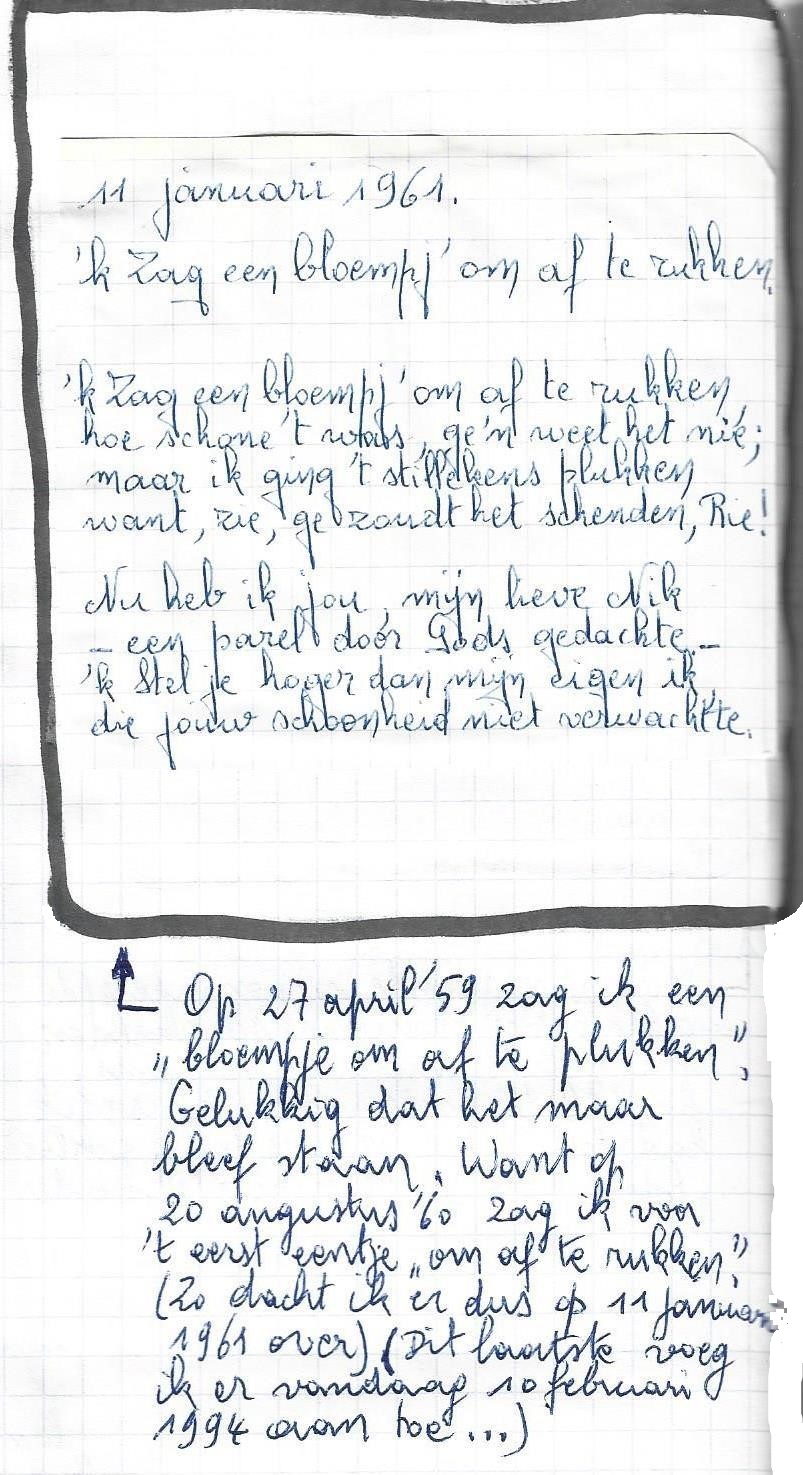 11 januari 1961.
'k Zag een bloempj' om af te rukken.
'k Zag een bloempj' om af te rukken,
hoe schone 't was, ge 'n weet het nie;
maar ik ging 't stillekens plukken
want, zie, ge zoudt het schenden, Rie!
Nu heb ik jou, mijn lieve Nik
– een parel door Gods gedachte –
'k Stel je hoger dan mijn eigen ik,
die jouw schoonheid niet verwachtte.
Op 27 april '59 zag ik een
„bloempje om af te plukken".
Gelukkig dat het maar
bleef staan. Want op
20 augustus '60 zag ik voor
't eerst eentje „om af te rukken".
(Zo dacht ik er dus op 11 januari
1961 over) (Dit laatste voeg
ik er vandaag 10 februari
1994 aan toe...)